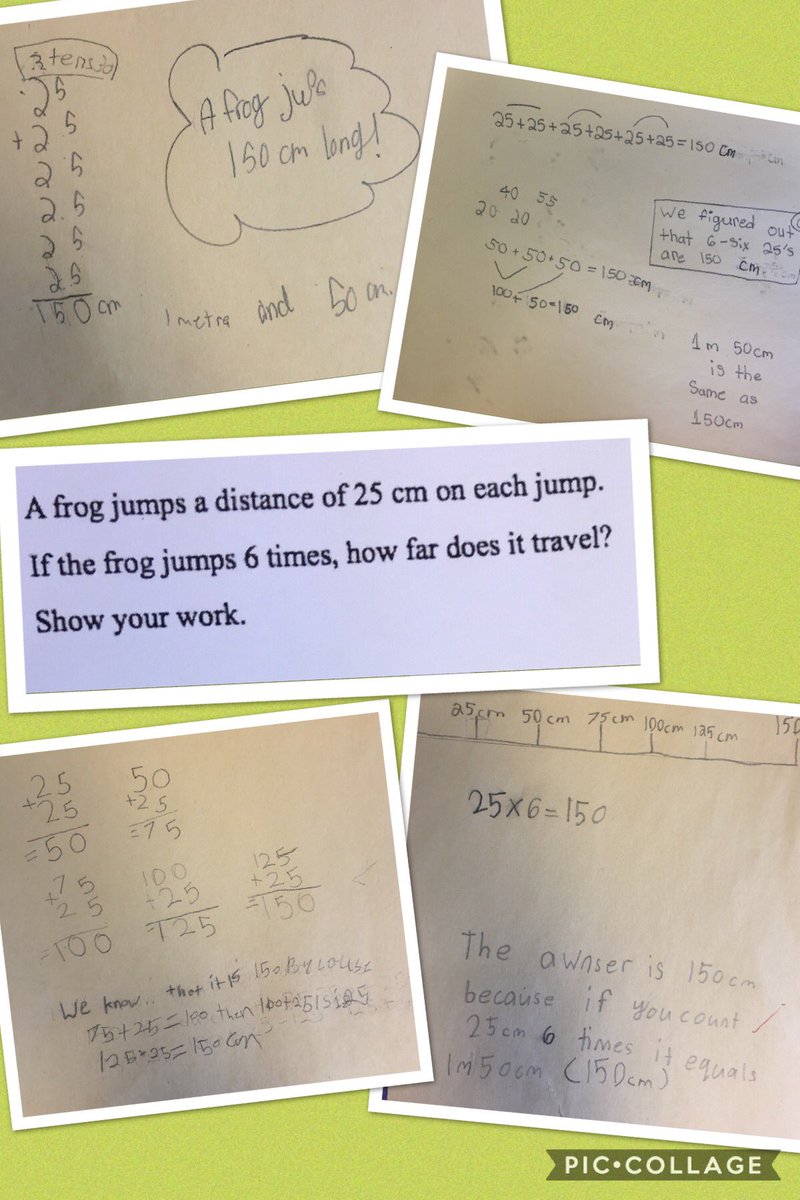 3 tens 30
25
+ 25
25
25
25
25
150 cm
A frog jups
150 cm long!
1 metra and 50 cm.
25+25+25+25+25+25=150 cm
40 55
20 20
50+50+50=150 cm
100+50=150 cm
We figured out
that 6-six 25's
are 150 cm
1m 50cm
is the
same as
150cm
A frog jumps a distance of 25 cm on each jump.
If the frog jumps 6 times, how far does it travel?
Show your work.
25
+25
=50
50
+25
=75
75
+25
=100
100
+25
=125
125
+25
=150
We know.. that it is 150
75+25=100 then 100+25 is 125
125+25=150 cm
25cm 50cm 75cm 100cm 125cm 150
25×6=150
The awnser is 150cm
because if you count
25cm 6 times it equals
1m50cm (150cm)
PIC•COLLAGE